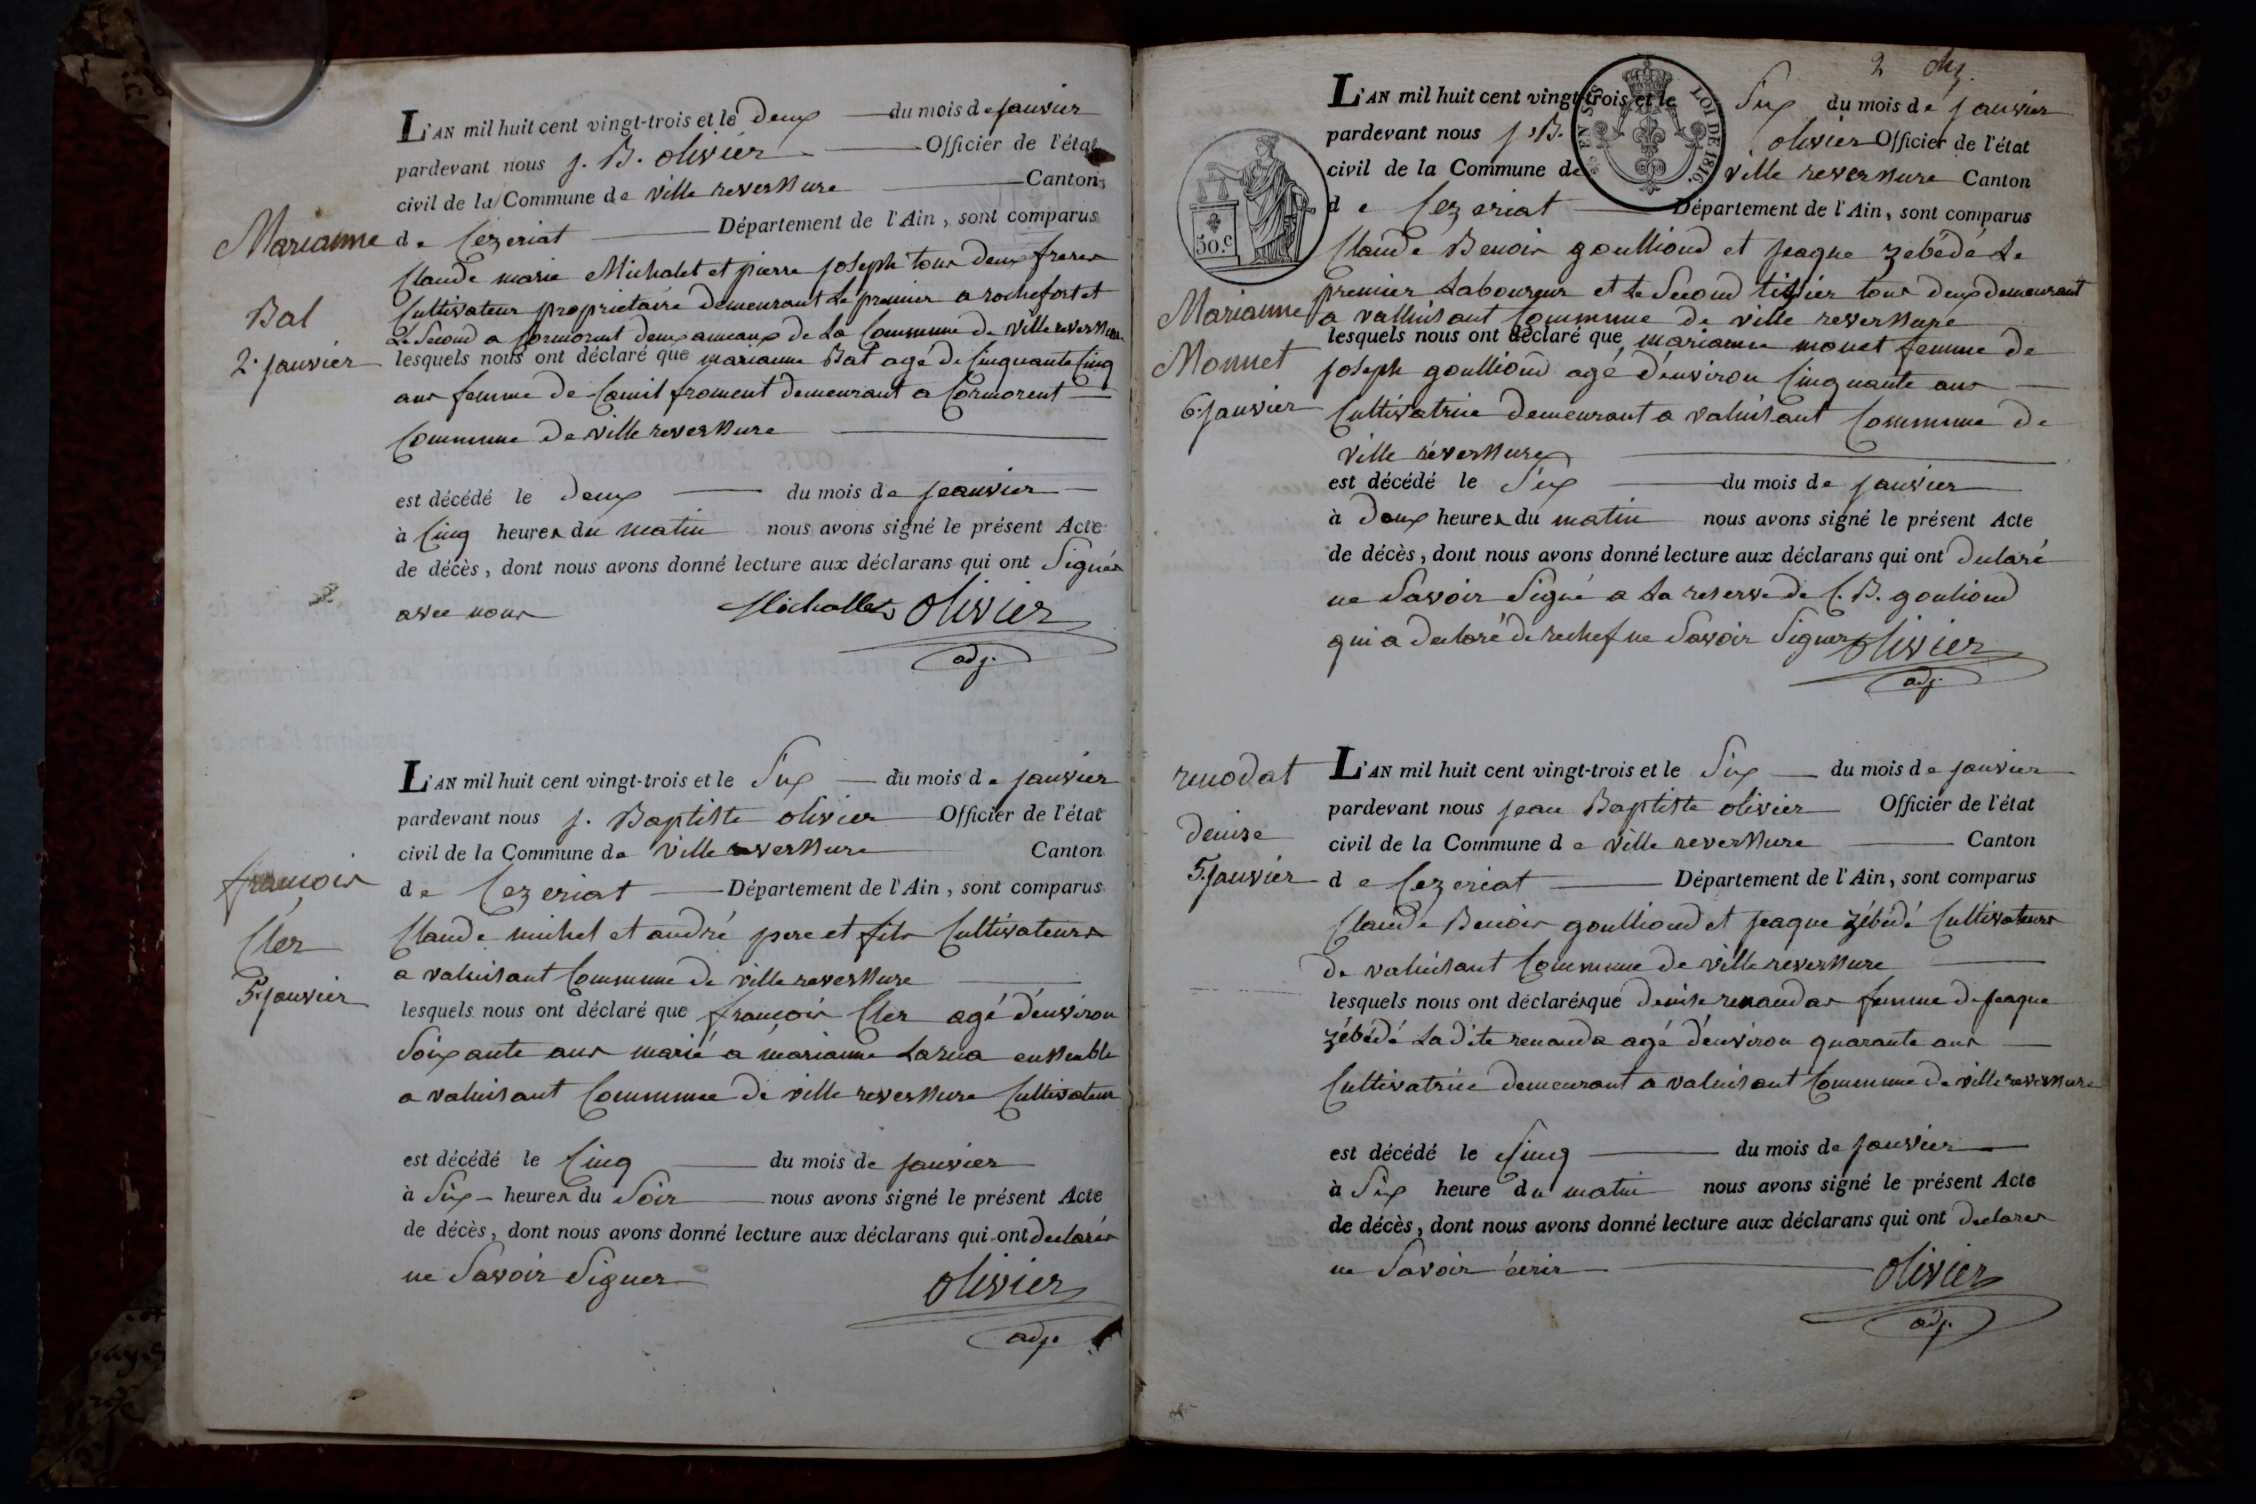 Marianne
Bal
2. janvier
L'AN mil huit cent vingt-trois et le deux du mois de janvier
pardevant nous j. B. olivier Officier de l'état
civil de la Commune de ville reverssure Canton
de Cezeriat Département de l'Ain, sont comparus
Claude marie Michalet et pierre joseph tous deux freres
Cultivateur proprietaire demeurant le premier a rochefort et
le Second a Cormorent deux ameaux de la Commune de ville reverssure
lesquels nous ont déclaré que marianne Bal agé de Cinquante Cinq
ans femme de Camil froment demeurant a Cormorent
Commune de ville reverssure
est décédé le deux du mois de jeanvier
à Cinq heures du matin nous avons signé le présent Acte
de décès, dont nous avons donné lecture aux déclarans qui ont Signés
avec nous Michallet olivier
adj.
françois
Cler
5. janvier
L'AN mil huit cent vingt-trois et le Six du mois de janvier
pardevant nous j. Baptiste olivier Officier de l'état
civil de la Commune de ville reverssure Canton
de Cezeriat Département de l'Ain, sont comparus
Claude michel et andré pere et fils Cultivateurs
a valuisant Commune de ville reverssure
lesquels nous ont déclaré que françois Cler agé d'environ
Soixante ans marié a marianne Larua enssemble
a valuisant Commune de ville reverssure Cultivateur
est décédé le Cinq du mois de janvier
à Six heures du Soir nous avons signé le présent Acte
de décès, dont nous avons donné lecture aux déclarans qui ont declarés
ne Savoir Signer olivier
adj.
2
EN SUS
LOI DE 1816.
50.c
Marianne
Monnet
6. janvier
L'AN mil huit cent vingt-trois et le Six du mois de janvier
pardevant nous j. B. olivier Officier de l'état
civil de la Commune de ville reverssure Canton
de Cezeriat Département de l'Ain, sont comparus
Claude Benoir goulliond et jeaque zebédé Le
premier Laboureur et le Second tissier tous deux demeurant
a valluisant Commune de ville reverssure
lesquels nous ont déclaré que marianne monet femme de
joseph goulliond agé d'environ Cinquante ans
Cultivatrice demeurant a valuisant Commune de
ville réverssure
est décédé le Six du mois de janvier
à deux heures du matin nous avons signé le présent Acte
de décès, dont nous avons donné lecture aux déclarans qui ont declaré
ne Savoir Signé a la reserve de C. B. gouliond
qui a declaré de rechef ne Savoir Signer olivier
adj.
renodat
denise
5. janvier
L'AN mil huit cent vingt-trois et le Six du mois de janvier
pardevant nous jean Baptiste olivier Officier de l'état
civil de la Commune de ville reverssure Canton
de Cezeriat Département de l'Ain, sont comparus
Claude Benoir goulliond et jeaque zébédé Cultivateurs
de valuisant Commune de ville reverssure
lesquels nous ont déclarés que denise renandas femme de jeaque
zébédé Ladite renanda agé d'environ quarante ans
Cultivatrice demeurant a valuisant Commune de ville reverssure
est décédé le Cinq du mois de janvier
à Six heure du matin nous avons signé le présent Acte
de décès, dont nous avons donné lecture aux déclarans qui ont declares
ne Savoir écrir olivier
adj.